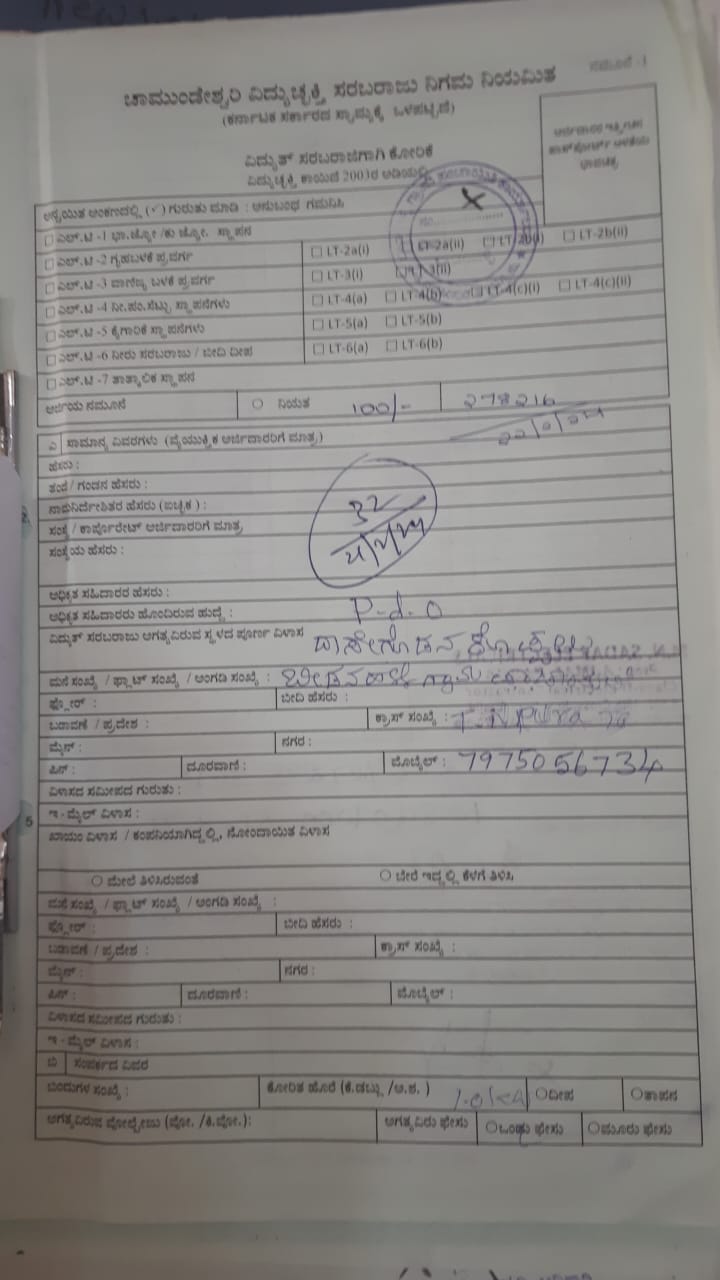 ನಮೂನೆ -1
ಚಾಮುಂಡೇಶ್ವರಿ ವಿದ್ಯುಚ್ಛಕ್ತಿ ಸರಬರಾಜು ನಿಗಮ ನಿಯಮಿತ
(ಕರ್ನಾಟಕ ಸರ್ಕಾರದ ಸ್ವಾಮ್ಯಕ್ಕೆ ಒಳಪಟ್ಟಿದೆ)
ವಿದ್ಯುತ್ ಸರಬರಾಜಿಗಾಗಿ ಕೋರಿಕೆ
ವಿದ್ಯುಚ್ಛಕ್ತಿ ಕಾಯಿದೆ 2003ರ ಅಡಿಯಲ್ಲಿ
ಅನ್ವಯಿತ ಅಂಕಣದಲ್ಲಿ (✓) ಗುರುತು ಮಾಡಿ : ಅನುಬಂಧ ಗಮನಿಸಿ
☐ ಎಲ್.ಟಿ -1 ಭಾ.ಜ್ಯೋ /ಕು ಜ್ಯೋ. ಸ್ಥಾಪನ
☐ ಎಲ್.ಟಿ -2 ಗೃಹಬಳಕೆ ಪ್ರವರ್ಗ ☐ LT-2a(i) ☐ LT-2a(ii) ☐ LT-2b(i) ☐ LT-2b(ii)
☐ ಎಲ್.ಟಿ -3 ವಾಣಿಜ್ಯ ಬಳಕೆ ಪ್ರವರ್ಗ ☐ LT-3(i) ☐ LT-3(ii)
☐ ಎಲ್.ಟಿ -4 ನೀ.ಪಂ.ಸೆಟ್ಟು ಸ್ಥಾಪನೆಗಳು ☐ LT-4(a) ☐ LT-4(b) ☐ LT-4(c)(i) ☐ LT-4(c)(ii)
☐ ಎಲ್.ಟಿ -5 ಕೈಗಾರಿಕೆ ಸ್ಥಾಪನೆಗಳು ☐ LT-5(a) ☐ LT-5(b)
☐ ಎಲ್.ಟಿ -6 ನೀರು ಸರಬರಾಜು / ಬೀದಿ ದೀಪ ☐ LT-6(a) ☐ LT-6(b)
☐ ಎಲ್.ಟಿ -7 ತಾತ್ಕಾಲಿಕ ಸ್ಥಾಪನ
ಅರ್ಜಿಯ ನಮೂನೆ ○ ನಿಯತ 100/- 278216
ಎ ಸಾಮಾನ್ಯ ವಿವರಗಳು (ವೈಯುಕ್ತಿಕ ಅರ್ಜಿದಾರರಿಗೆ ಮಾತ್ರ)
ಹೆಸರು :
ತಂದೆ / ಗಂಡನ ಹೆಸರು :
ನಾಮನಿರ್ದೇಶಿತರ ಹೆಸರು (ಐಚ್ಛಿಕ) :
ಸಂಸ್ಥೆ / ಕಾರ್ಪೊರೇಟ್ ಅರ್ಜಿದಾರರಿಗೆ ಮಾತ್ರ
ಸಂಸ್ಥೆಯ ಹೆಸರು :
ಅಧಿಕೃತ ಸಹಿದಾರರ ಹೆಸರು :
ಅಧಿಕೃತ ಸಹಿದಾರರು ಹೊಂದಿರುವ ಹುದ್ದೆ : P-d-O
ವಿದ್ಯುತ್ ಸರಬರಾಜು ಅಗತ್ಯವಿರುವ ಸ್ಥಳದ ಪೂರ್ಣ ವಿಳಾಸ
ಮನೆ ಸಂಖ್ಯೆ / ಫ್ಲಾಟ್ ಸಂಖ್ಯೆ / ಅಂಗಡಿ ಸಂಖ್ಯೆ :
ಫ್ಲೋರ್ : ಬೀದಿ ಹೆಸರು :
ಬಡಾವಣೆ / ಪ್ರದೇಶ : ಕ್ರಾಸ್ ಸಂಖ್ಯೆ : T. N Pura
ಮೈನ್ : ನಗರ :
ಪಿನ್ : ದೂರವಾಣಿ : ಮೊಬೈಲ್ : 7975056734
ವಿಳಾಸದ ಸಮೀಪದ ಗುರುತು :
ಇ-ಮೈಲ್ ವಿಳಾಸ :
ಖಾಯಂ ವಿಳಾಸ / ಕಂಪನಿಯಾಗಿದ್ದಲ್ಲಿ, ನೋಂದಾಯಿತ ವಿಳಾಸ
○ ಮೇಲೆ ತಿಳಿಸಿರುವಂತೆ ○ ಬೇರೆ ಇದ್ದಲ್ಲಿ ಕೆಳಗೆ ತಿಳಿಸಿ
ಮನೆ ಸಂಖ್ಯೆ / ಫ್ಲಾಟ್ ಸಂಖ್ಯೆ / ಅಂಗಡಿ ಸಂಖ್ಯೆ :
ಫ್ಲೋರ್ : ಬೀದಿ ಹೆಸರು :
ಬಡಾವಣೆ / ಪ್ರದೇಶ : ಕ್ರಾಸ್ ಸಂಖ್ಯೆ :
ಮೈನ್ : ನಗರ :
ಪಿನ್ : ದೂರವಾಣಿ : ಮೊಬೈಲ್ :
ವಿಳಾಸದ ಸಮೀಪದ ಗುರುತು :
ಇ-ಮೈಲ್ ವಿಳಾಸ :
ಬಿ ಸಂಪರ್ಕದ ವಿವರ
ಬಿಂದುಗಳ ಸಂಖ್ಯೆ : ಕೋರಿಕೆ ಹೊರೆ (ಕಿ.ಡಬ್ಲ್ಯು /ಅ.ಶ. ) ○ದೀಪ ○ತಾಪನ
ಅಗತ್ಯವಿರುವ ವೋಲ್ಟೇಜು (ವೋ. /ಕಿ.ವೋ.): ಅಗತ್ಯವಿರು ಫೇಸು ○ಒಂದು ಫೇಸು ○ಮೂರು ಫೇಸು